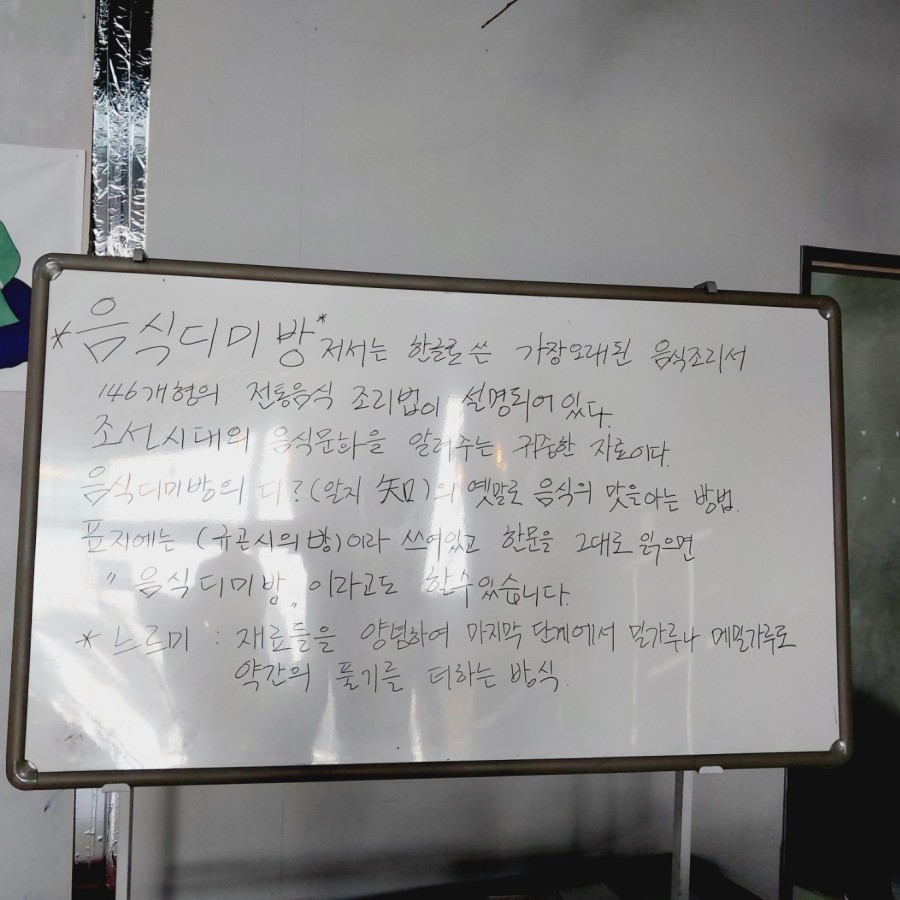 *음식디미방* 저서는 한글로 쓴 가장오래된 음식조리서
146개형의 전통음식 조리법이 설명되어있다.
조선시대의 음식문화를 알려주는 귀중한 자료이다.
음식디미방의 디?(알지 知)의 옛말로 음식의 맛을아는 방법.
표지에는 (규곤시의방)이라 쓰여있고 한문을 그대로 읽으면
"음식디미방"이라고도 할수있습니다.
* 느르미 : 재료들을 양념하여 마지막 단계에서 밀가루나 메밀가루로
약간의 풀기를 더하는 방식.